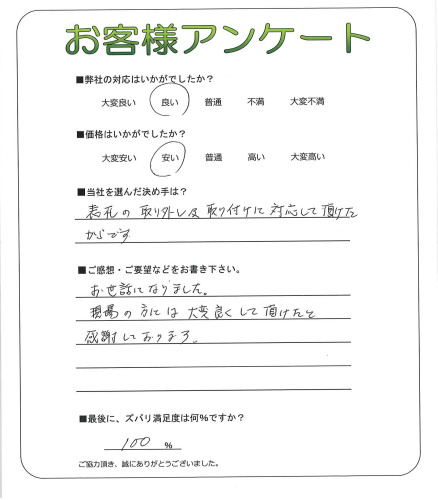 お客様アンケート
■弊社の対応はいかがでしたか？
大変良い 良い 普通 不満 大変不満
■価格はいかがでしたか？
大変安い 安い 普通 高い 大変高い
■当社を選んだ決め手は？
表札の取り外し及取り付けに対応して頂けた
からです
■ご感想・ご要望などをお書き下さい。
お世話になりました。
現場の方には大変良くして頂けたと
感謝しております。
■最後に、ズバリ満足度は何％ですか？
100 ％
ご協力頂き、誠にありがとうございました。